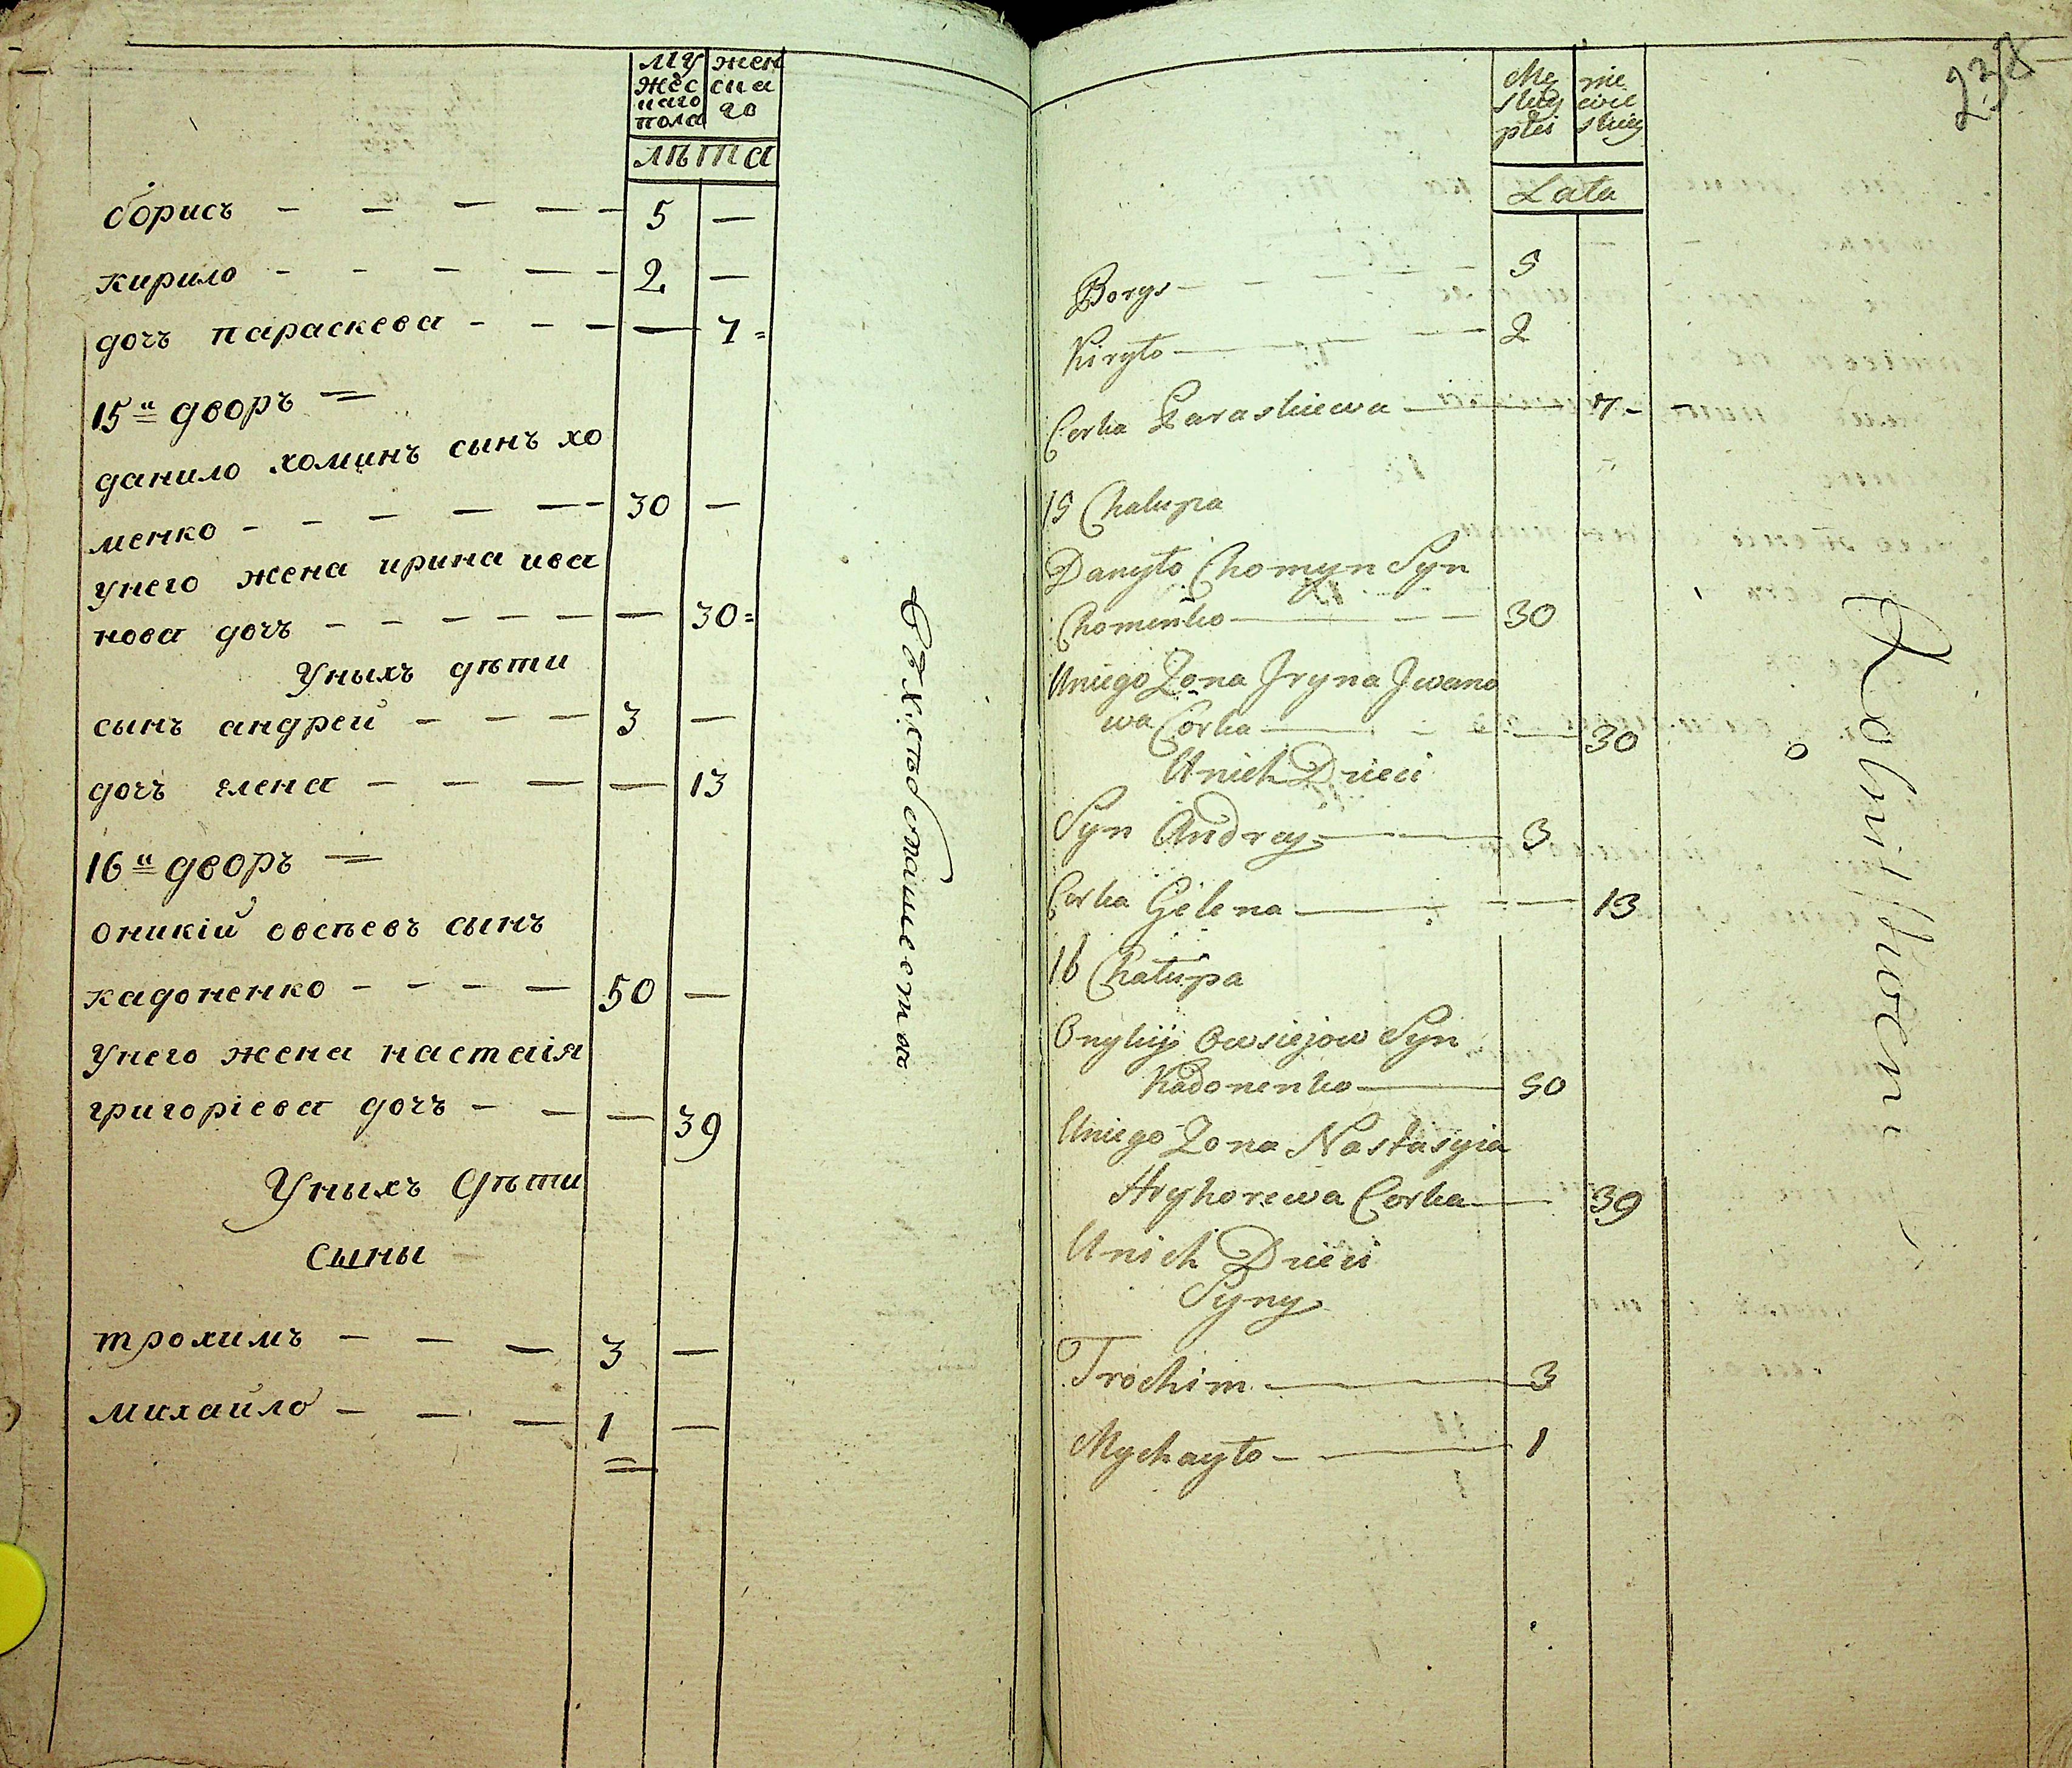 му
жес
каго
пола
жен
ска
го
лѣта
борисъ - - - - - 5 -
кирило - - - - - 2 -
дочъ параскева - - - - 7 =
15й дворъ =
данило хоминъ сынъ хо
менко - - - - - 30 -
унего жена ирина ива
нова дочъ - - - - - - 30 =
Уныхъ дѣти
сынъ андрей - - - 3 -
дочъ елена - - - - 13
16й дворъ =
оникій овсѣевъ сынъ
кадоненко - - - - 50 -
Унего жена настасія
григоріева дочъ - - - 39
Уныхъ Дѣти
Сыны
трохимъ - - - 3 -
михайло - - - 1 -
В Хлѣбопашествѣ
238
Mę
skiey
płci
nie
wie
skiey
Lata
Borys - - - 5
Kiryło - - - 2
Corka Paraskiewa - 7 -
15 Chałupa
Danyło Chomyn Syn
Chomenko - - - 30
Uniego Zona Jryna Jwano
wa Corka - - - 30
Unich Dzieci
Syn Andrey - - 3
Corka Gelena - - - 13
16 Chałupa
Onykiy Owsiejow Syn
Kadonenko - 50
Uniego Zona Nastasyia
Hryhorewa Corka - 39
Unich Dzieci
Syny
Trochim - 3
Mychayło - - 1
Rolnikiem